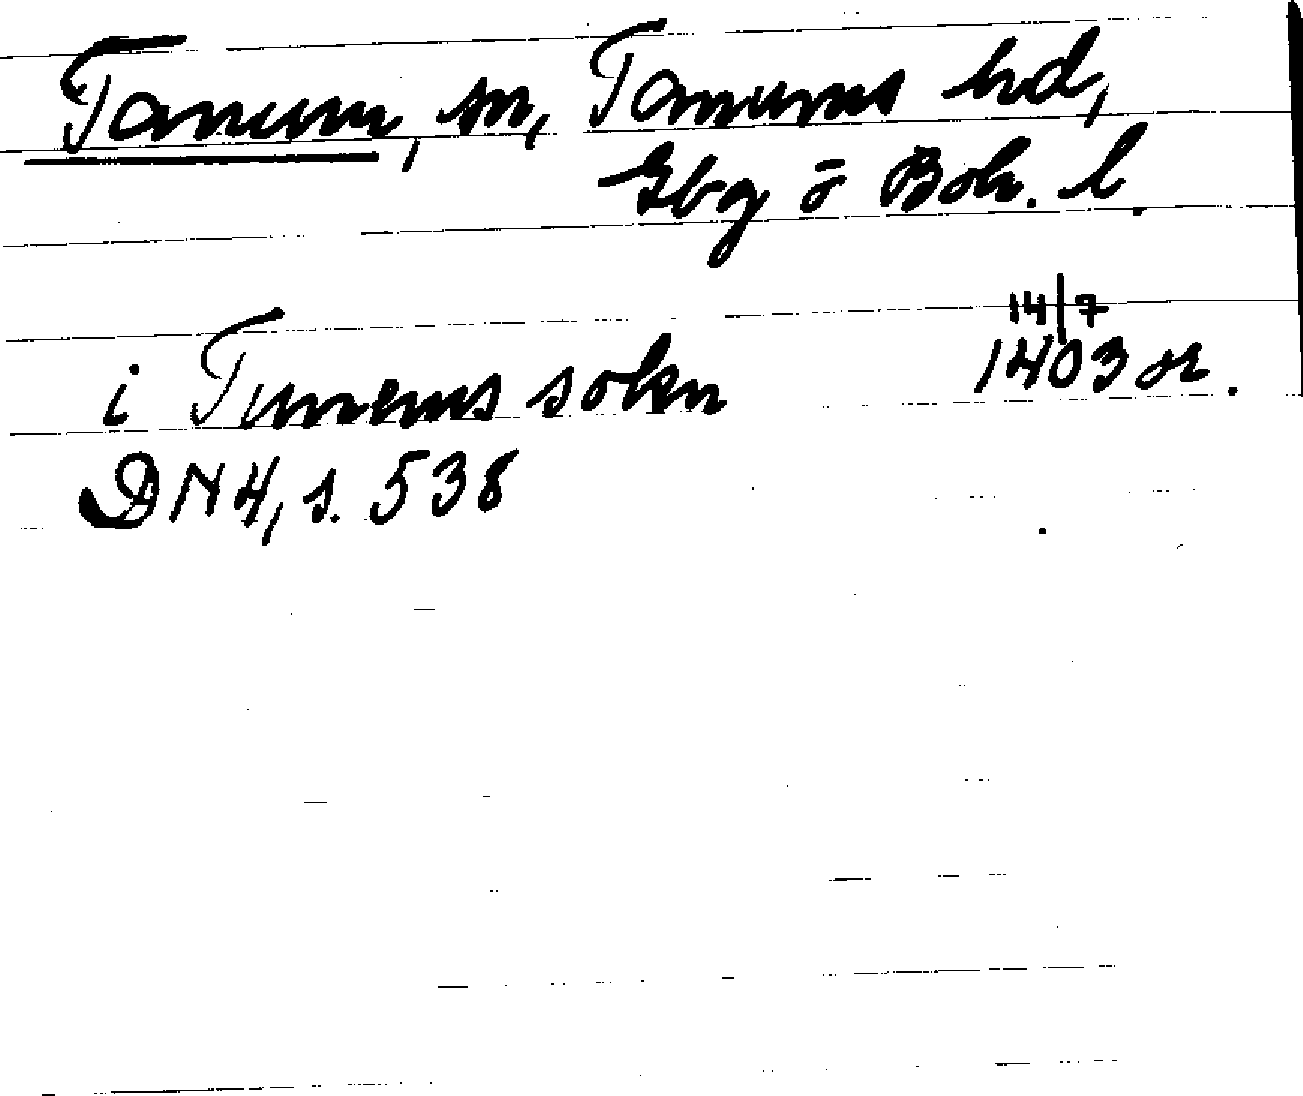 Tanum, sn, Tanums hd,
Gbg o Boh. l.
14/7
i Tunems sokn 1403 or.
DN 4, s. 538